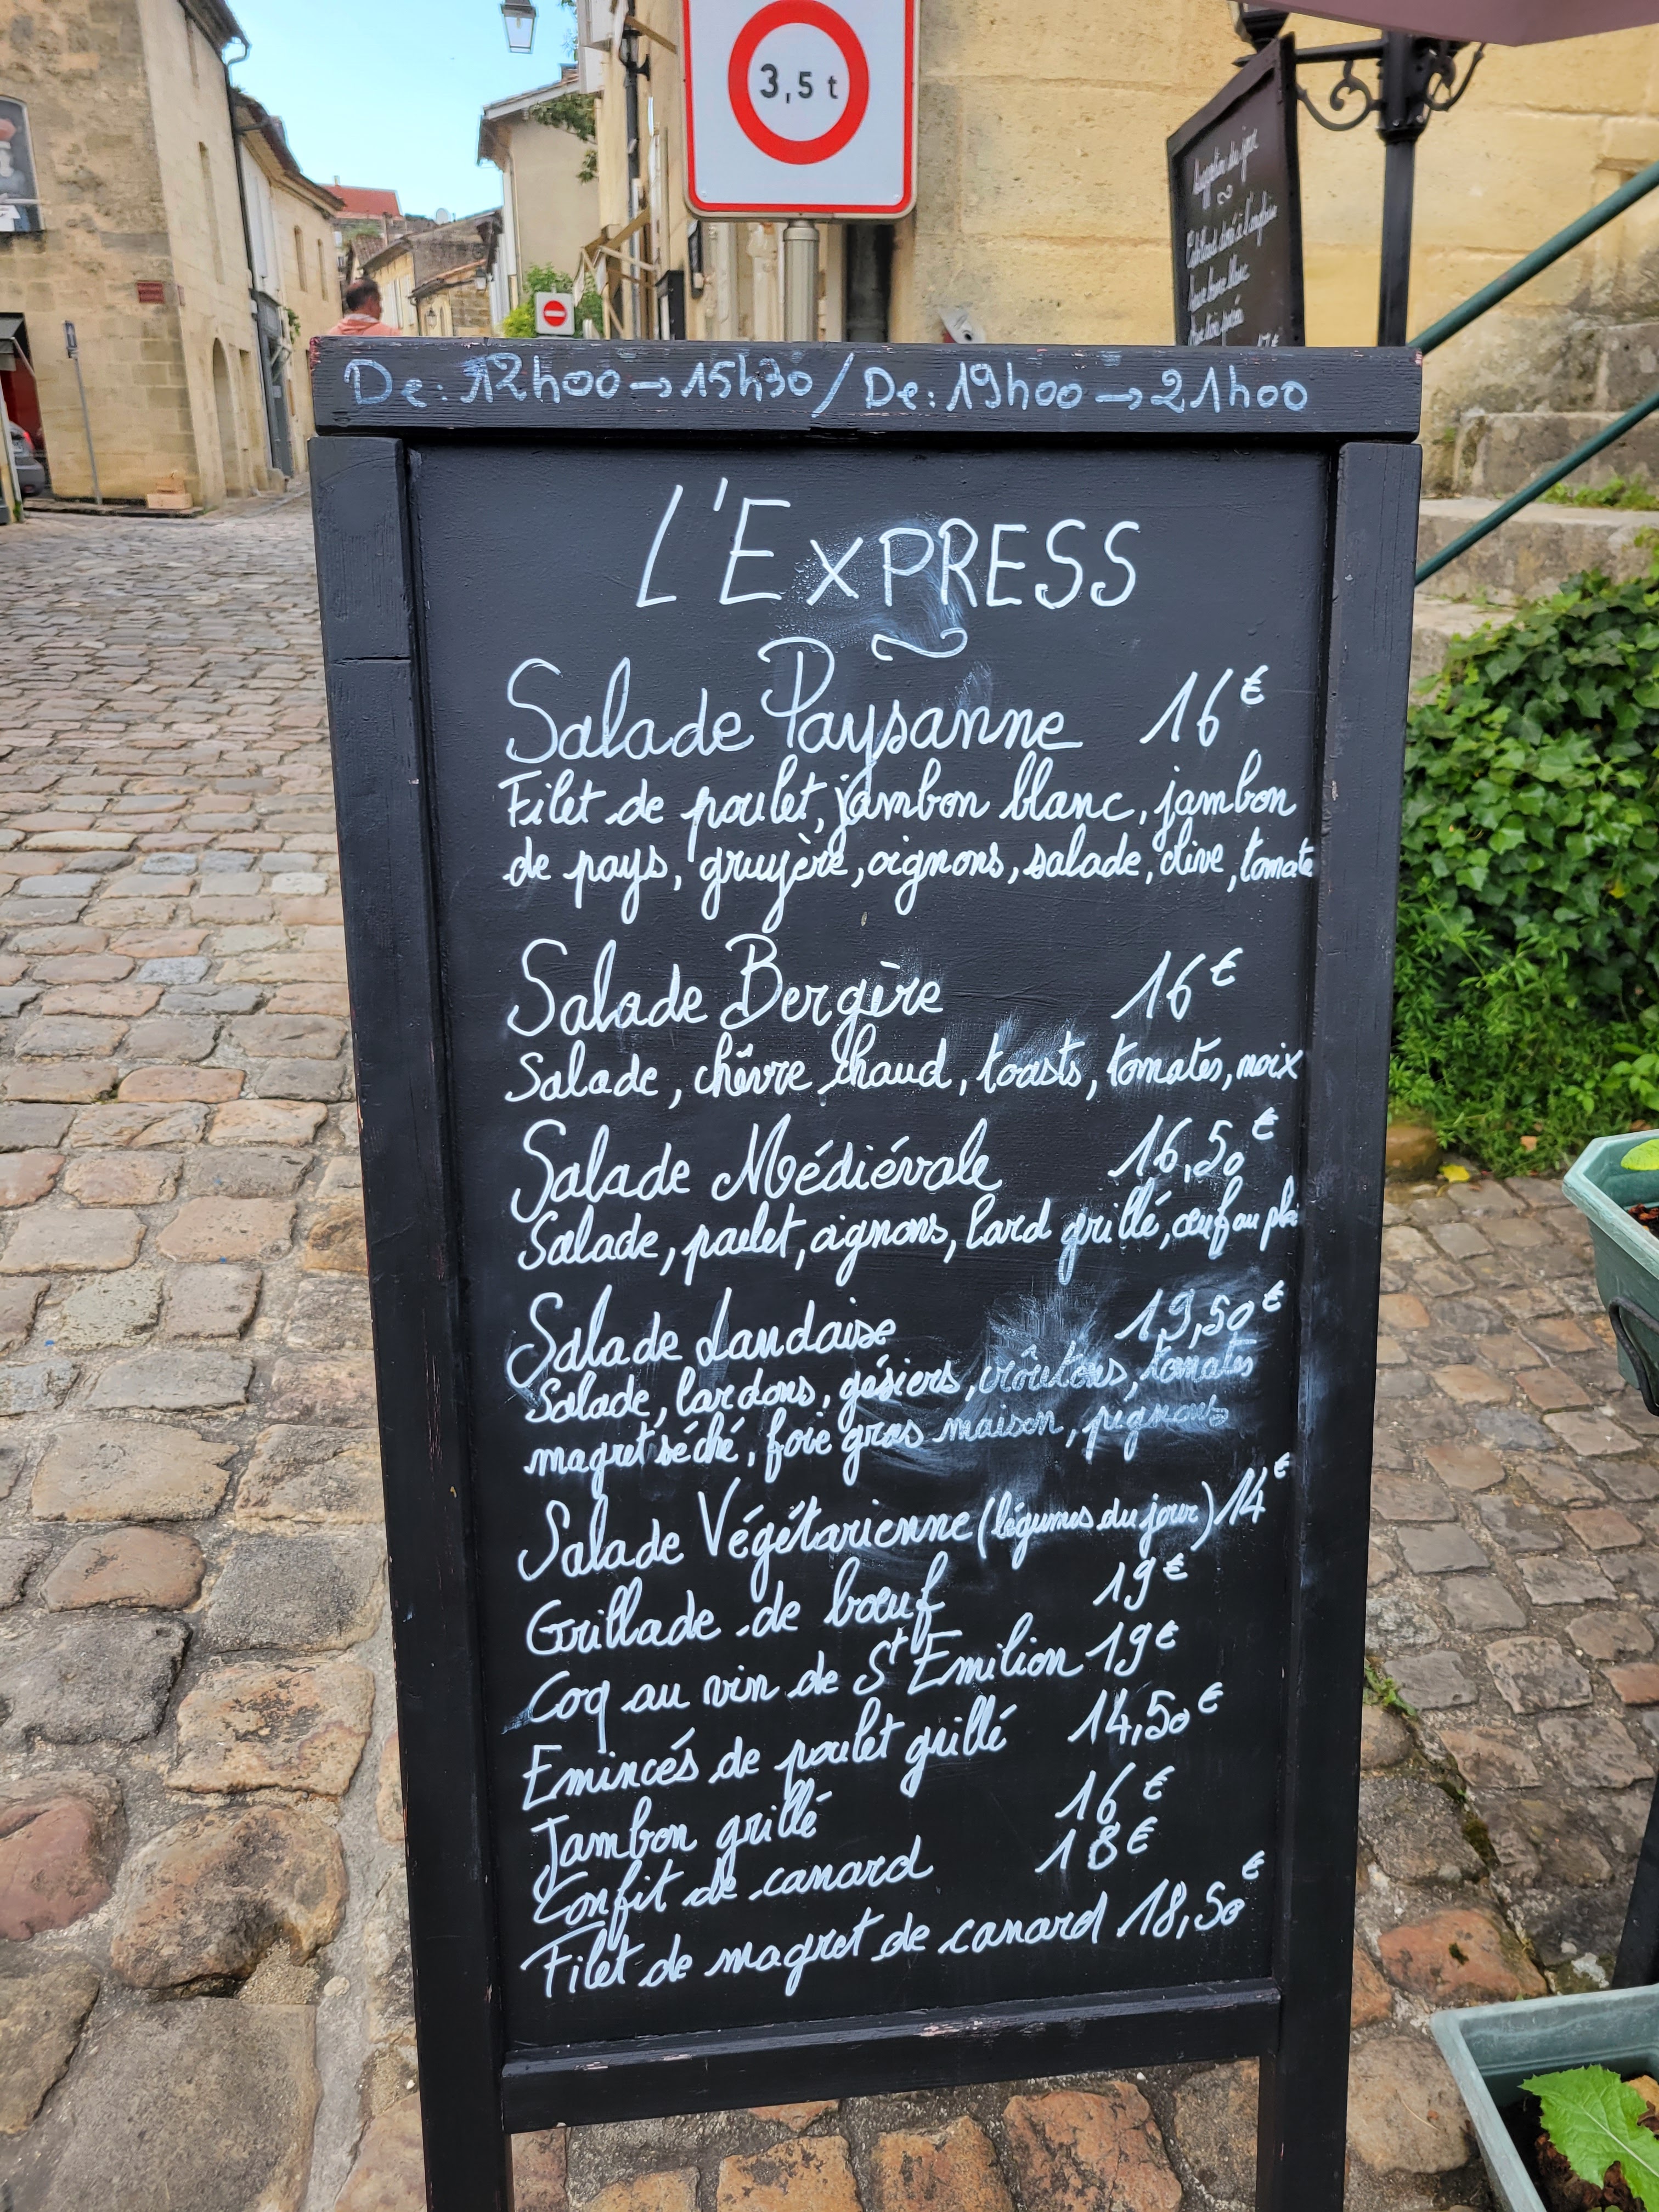 3,5 t
Suggestion du jour
De: 12h00 → 15h30 / De: 19h00 → 21h00
L'ExPRESS
Salade Paysanne 16€
Filet de poulet, jambon blanc, jambon
de pays, gruyère, oignons, salade, olive, tomate
Salade Bergère 16€
Salade, chêvre chaud, toasts, tomates, noix
Salade Médiévale 16,50€
Salade, poulet, oignons, lard grillé, œuf au pla
Salade Landaise 19,50€
Salade, lardons, gésiers, croûtons, tomates
magret séché, foie gras maison, pignons
Salade Végétarienne (légumes du jour) 14€
Grillade de bœuf 19€
Coq au vin de St Emilion 19€
Emincés de poulet grillé 14,50€
Jambon grillé 16€
Confit de canard 18€
Filet de magret de canard 18,50€